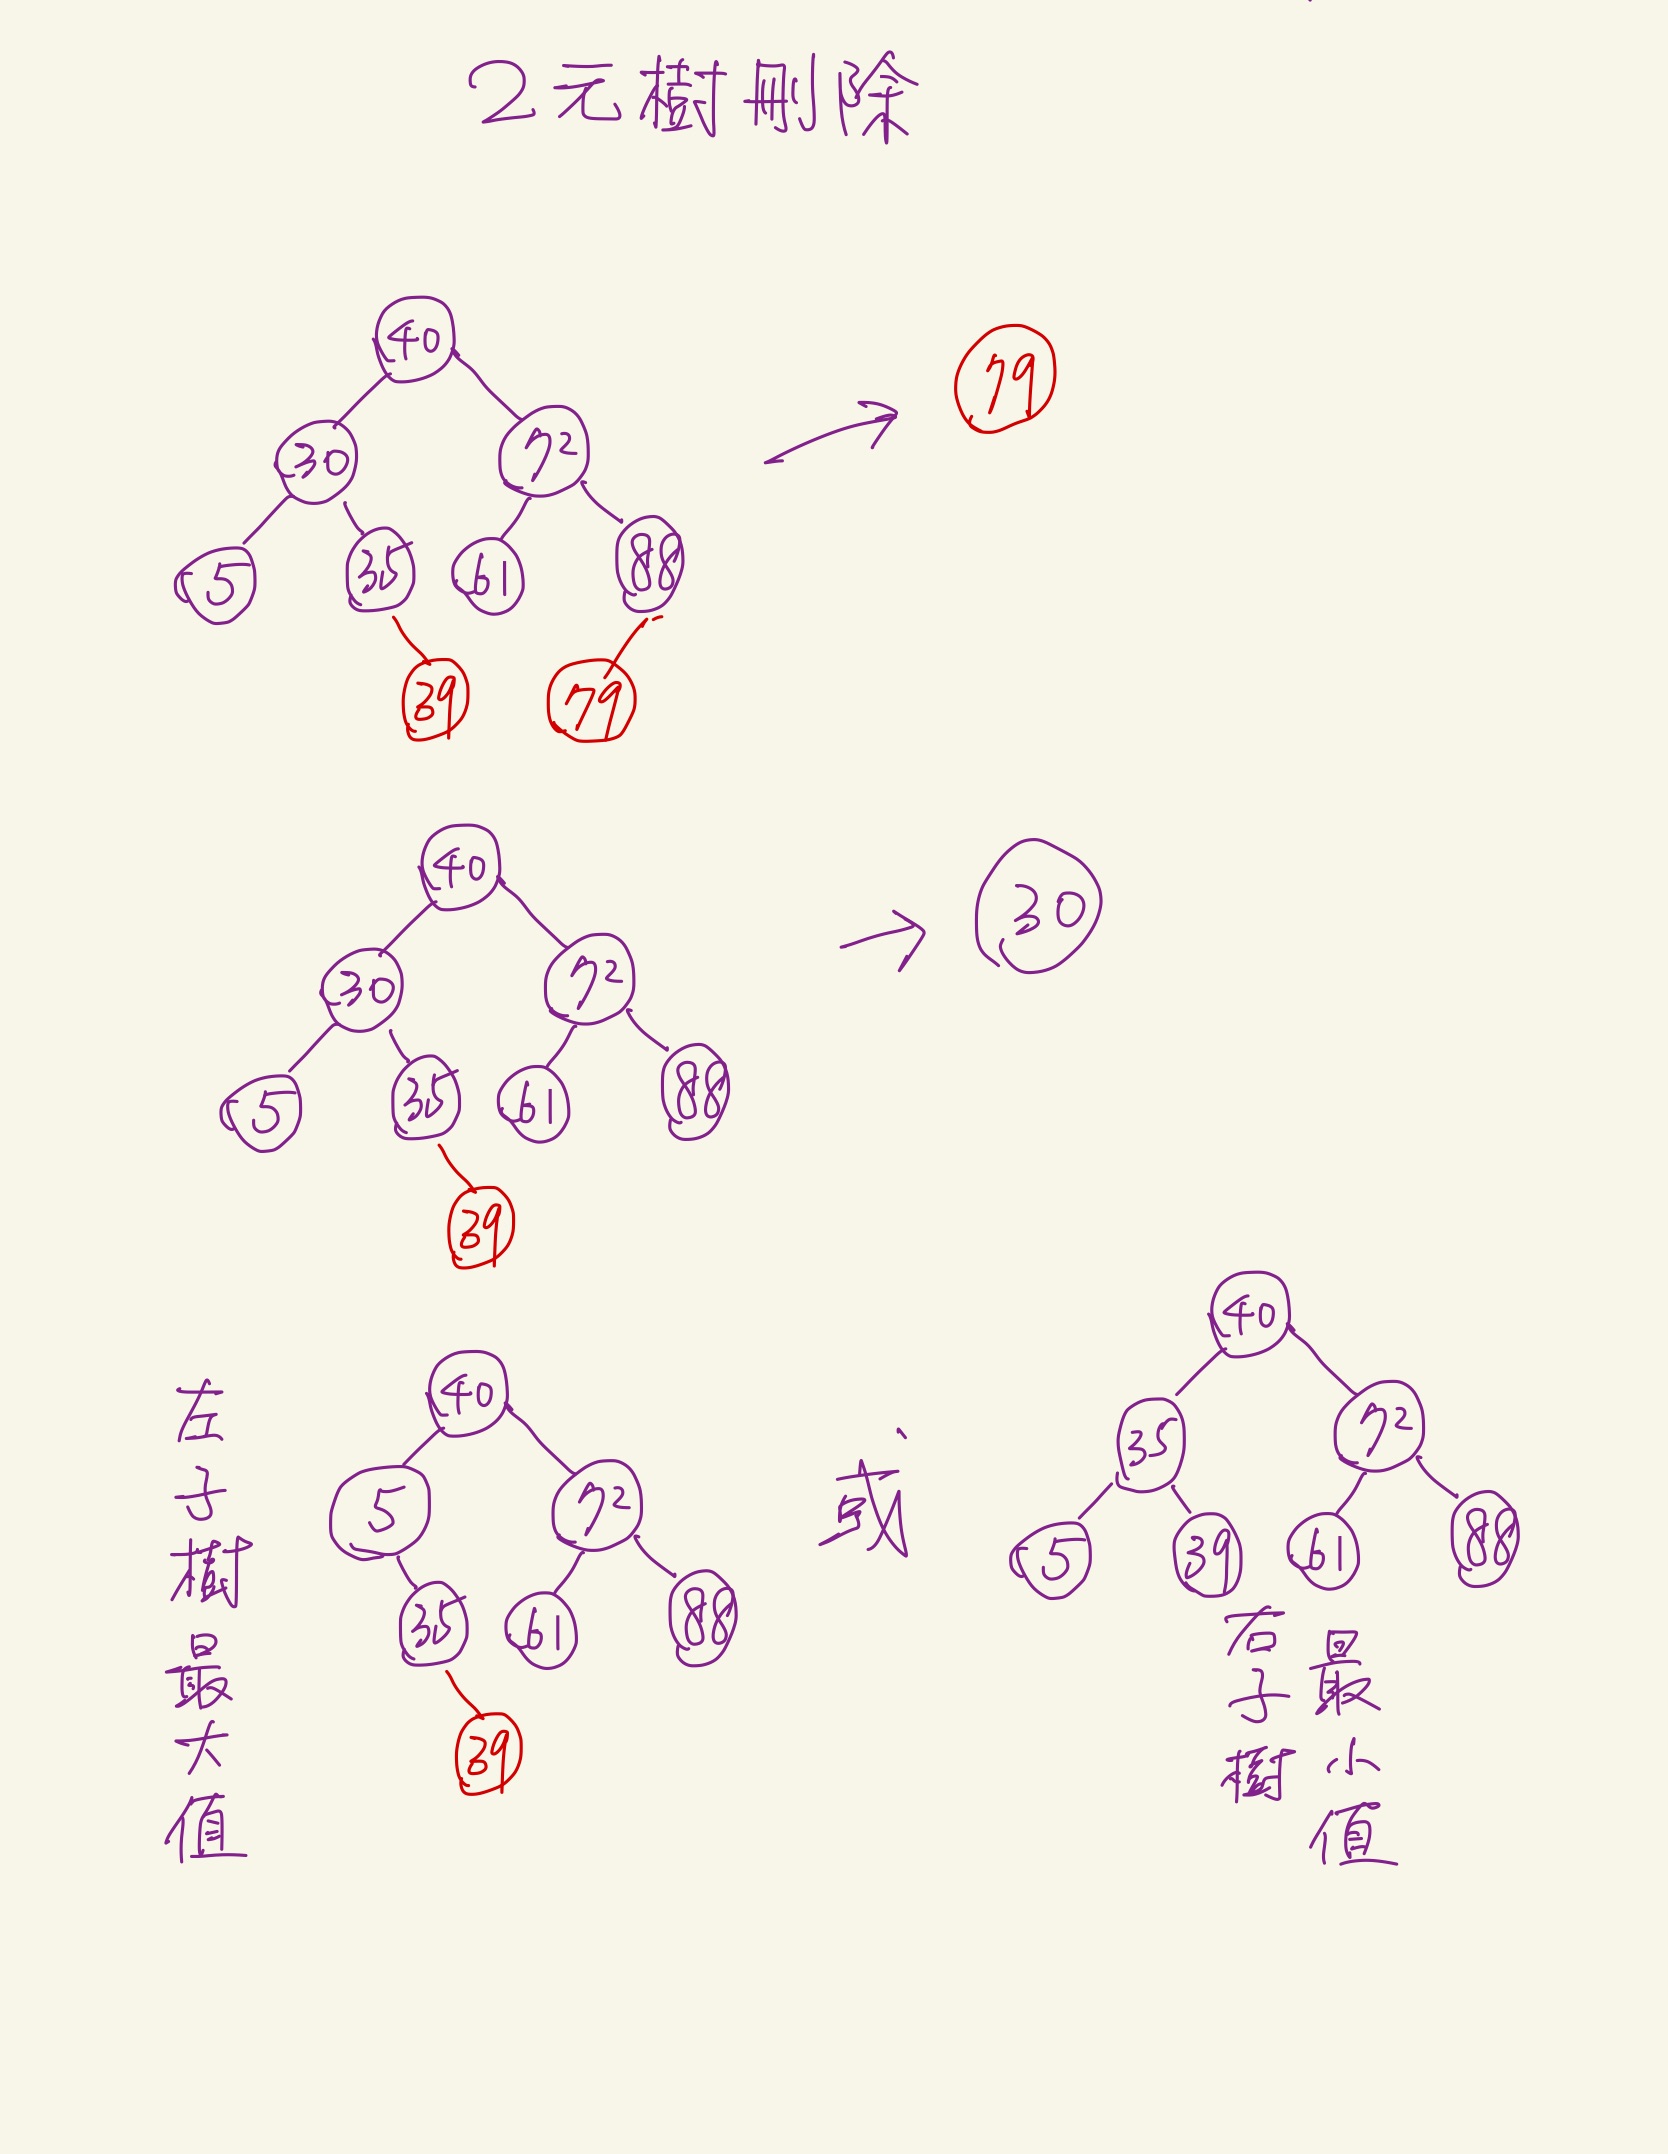 2元樹刪除
40
30 72
5 35 61 88
39 79
79
40
30 72
5 35 61 88
39
30
左子樹最大值
40
5 72
35 61 88
39
或
40
35 72
5 39 61 88
右子樹
最小值